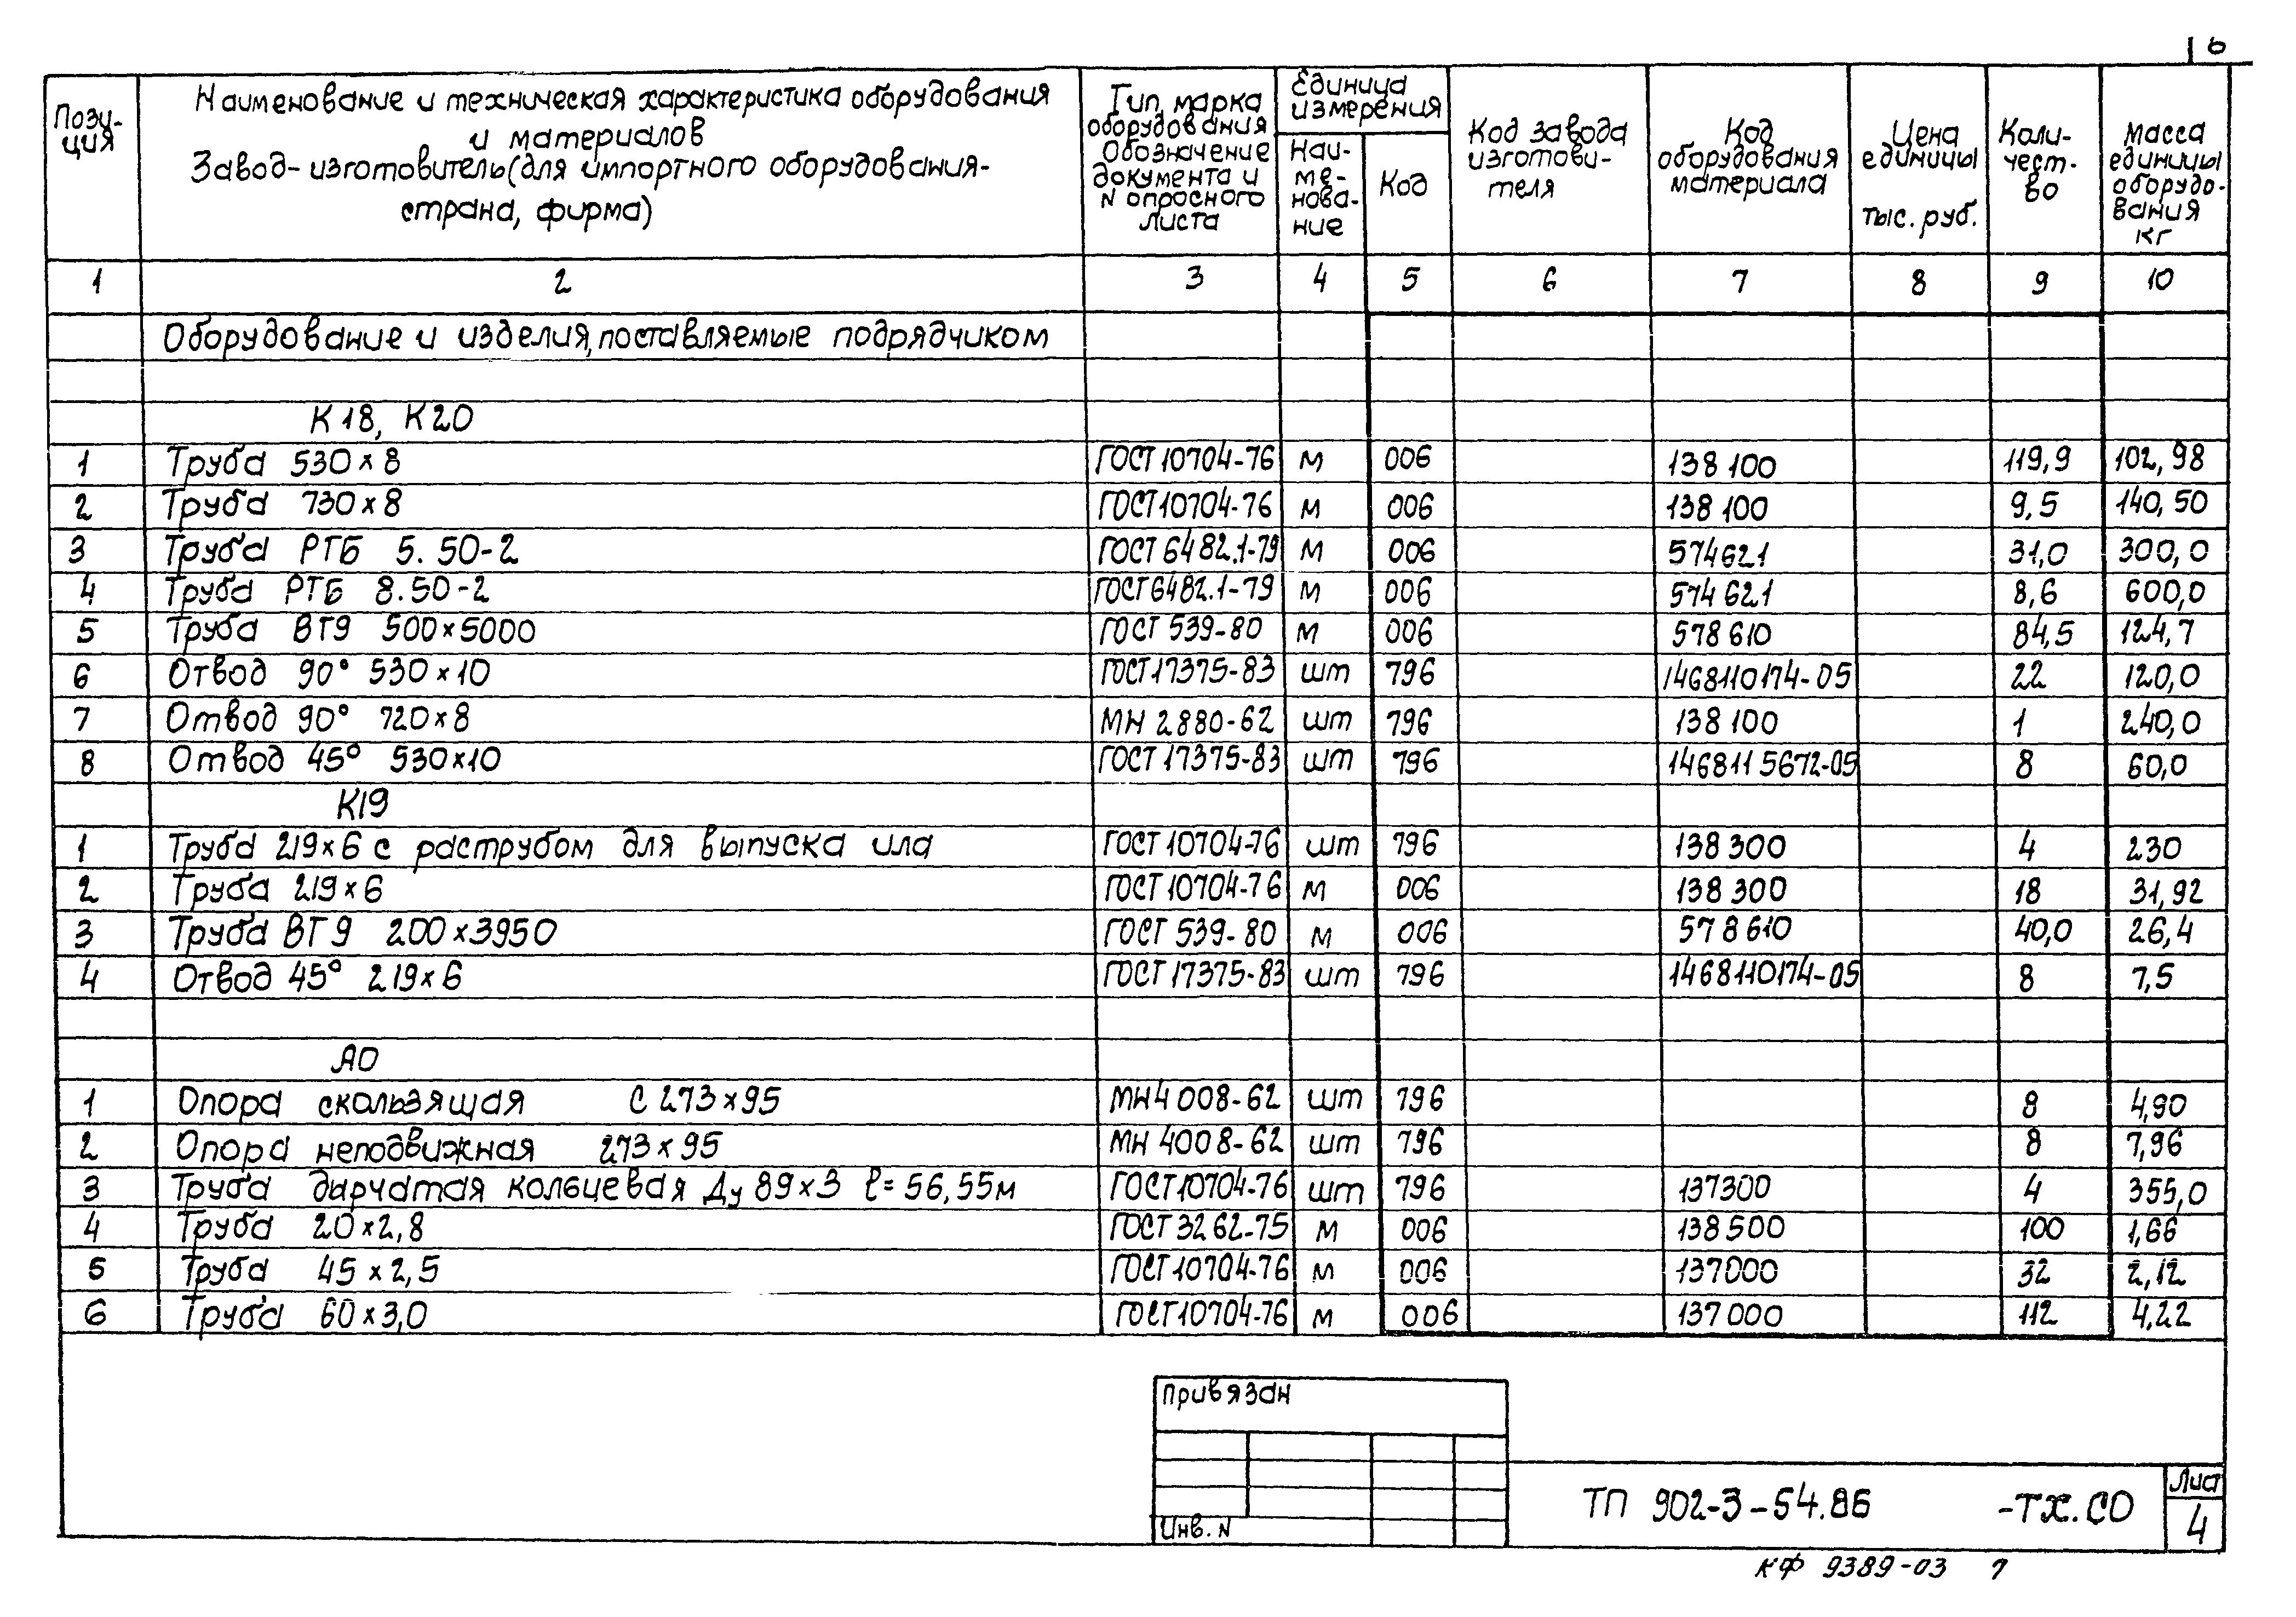 6
Пози-
ция
Наименование и техническая характеристика оборудования
и материалов
Завод-изготовитель(для импортного оборудования-
страна, фирма)
Тип, марка
оборудования
Обозначение
документа и
N опросного
листа
Единица
измерения
Наи-
ме-
нова-
ние
Код
Код завода
изготови-
теля
Код
оборудования
материала
Цена
единицы
тыс. руб.
Коли-
чест-
во
Масса
единицы
оборудо-
вания
кг
1 2 3 4 5 6 7 8 9 10
Оборудование и изделия, поставляемые подрядчиком
К18, К20
1 Труба 530×8 ГОСТ 10704-76 м 006 138 100 119,9 102,98
2 Труба 730×8 ГОСТ 10704-76 м 006 138 100 9,5 140,50
3 Труба РТБ 5.50-2 ГОСТ 6482.1-79 м 006 574621 31,0 300,0
4 Труба РТБ 8.50-2 ГОСТ 6482.1-79 м 006 574 621 8,6 600,0
5 Труба ВТ9 500×5000 ГОСТ 539-80 м 006 578 610 84,5 124,7
6 Отвод 90° 530×10 ГОСТ 17375-83 шт 796 1468110174-05 22 120,0
7 Отвод 90° 720×8 МН 2880-62 шт 796 138 100 1 240,0
8 Отвод 45° 530×10 ГОСТ 17375-83 шт 796 146811 5672-05 8 60,0
К19
1 Труба 219×6 с раструбом для выпуска ила ГОСТ 10704-76 шт 796 138 300 4 230
2 Труба 219×6 ГОСТ 10704-76 м 006 138 300 18 31,92
3 Труба ВТ9 200×3950 ГОСТ 539-80 м 006 578 610 40,0 26,4
4 Отвод 45° 219×6 ГОСТ 17375-83 шт 796 1468110174-05 8 7,5
А0
1 Опора скользящая С 273×95 МН 4008-62 шт 796 8 4,90
2 Опора неподвижная 273×95 МН 4008-62 шт 796 8 7,96
3 Труба дырчатая кольцевая Ду 89×3 ℓ=56,55м ГОСТ 10704-76 шт 796 137300 4 355,0
4 Труба 20×2,8 ГОСТ 3262-75 м 006 138 500 100 1,66
5 Труба 45×2,5 ГОСТ 10704-76 м 006 137000 32 2,12
6 Труба 60×3,0 ГОСТ 10704-76 м 006 137 000 112 4,22
Привязан
Инв. N
ТП 902-3-54.86 -ТХ.СО
Лист
4
КФ 9389-03 7